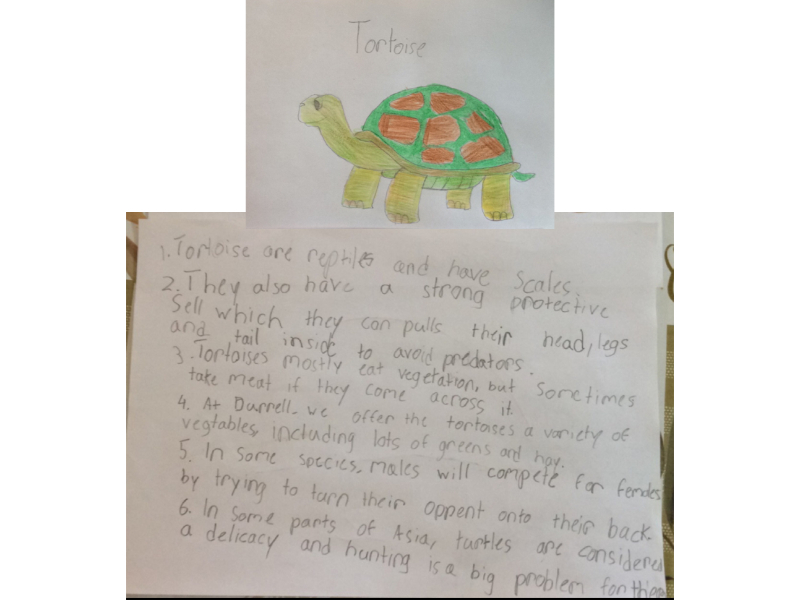 Tortoise
1. Tortoise are reptiles and have scales.
2. They also have a strong protective
Sell which they can pulls their head, legs
and tail inside to avoid predators.
3. Tortoises mostly eat vegetation, but sometimes
take meat if they come across it.
4. At Durrell, we offer the tortoises a variety of
vegtables, including lots of greens and hay.
5. In some species, males will compete for females
by trying to turn their oppent onto their back.
6. In some parts of Asia, turtles are considered
a delicacy and hunting is a big problem for